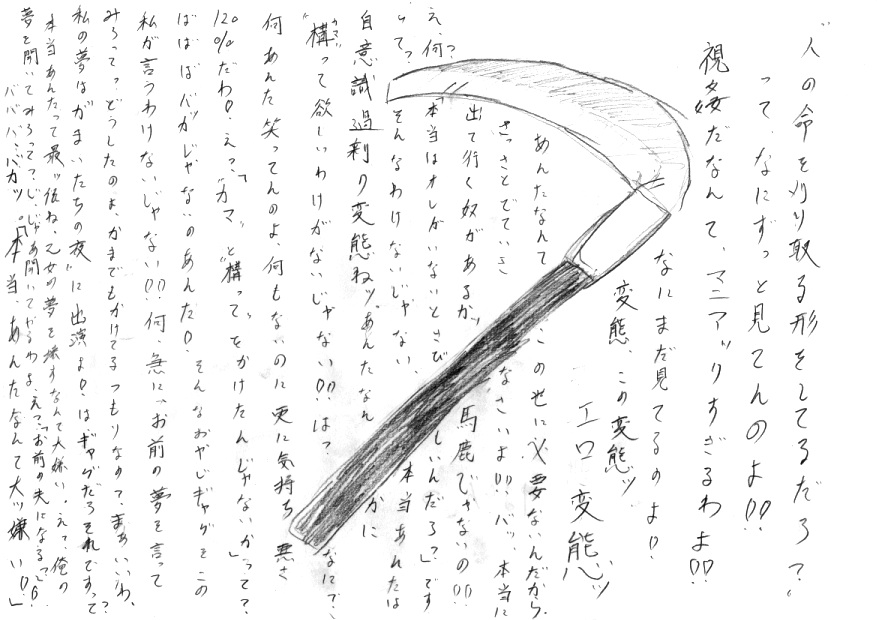 "人の命を刈り取る形をしてるだろ？"
って、なにずっと見てんのよ!!
視姦だなんて、マニアックすぎるわよ!!
なにまだ見てるのよ!
変態、この変態ッ
エロ変態ッ
あんたなんてこの世に必要ないんだから、
さっさとでていきなさいよ!!バッ、本当に
出て行く奴があるか、馬鹿じゃないの!!
え、何？「本当はオレがいないとさびしいんだろ？」です
って？そんなわけないじゃない、本当あんたは
自意識過剰り変態ねッ。あんたなんかに
"構って欲しいわけがないじゃない!!は？なにでこ
何あんた笑ってんのよ、何もないのに更に気持ち悪さ
120%だわ!えっ、「"カマ"と"構って"をかけたんじゃないか」って？
ばばばバッカじゃないのあんた!そんなおやじギャグをこの
私が言うわけないじゃない!!何、急に、「お前の夢を言って
みろって？どうしたのよ、かまでもかけてるつもりなの？まぁいいわ、
私の夢は"がまいたちの夜"に出演よ!は、ギャグだろそれですって？
本当あんたって最ッ低ね、乙女の夢を壊すなんて大嫌い。えっ、俺の
夢を聞いてみろって？じ、じゃあ聞いてやるわよ、えっ、「お前の夫になる」?!
バババ、バカッ。「本当、あんたなんて大ッ嫌い!」